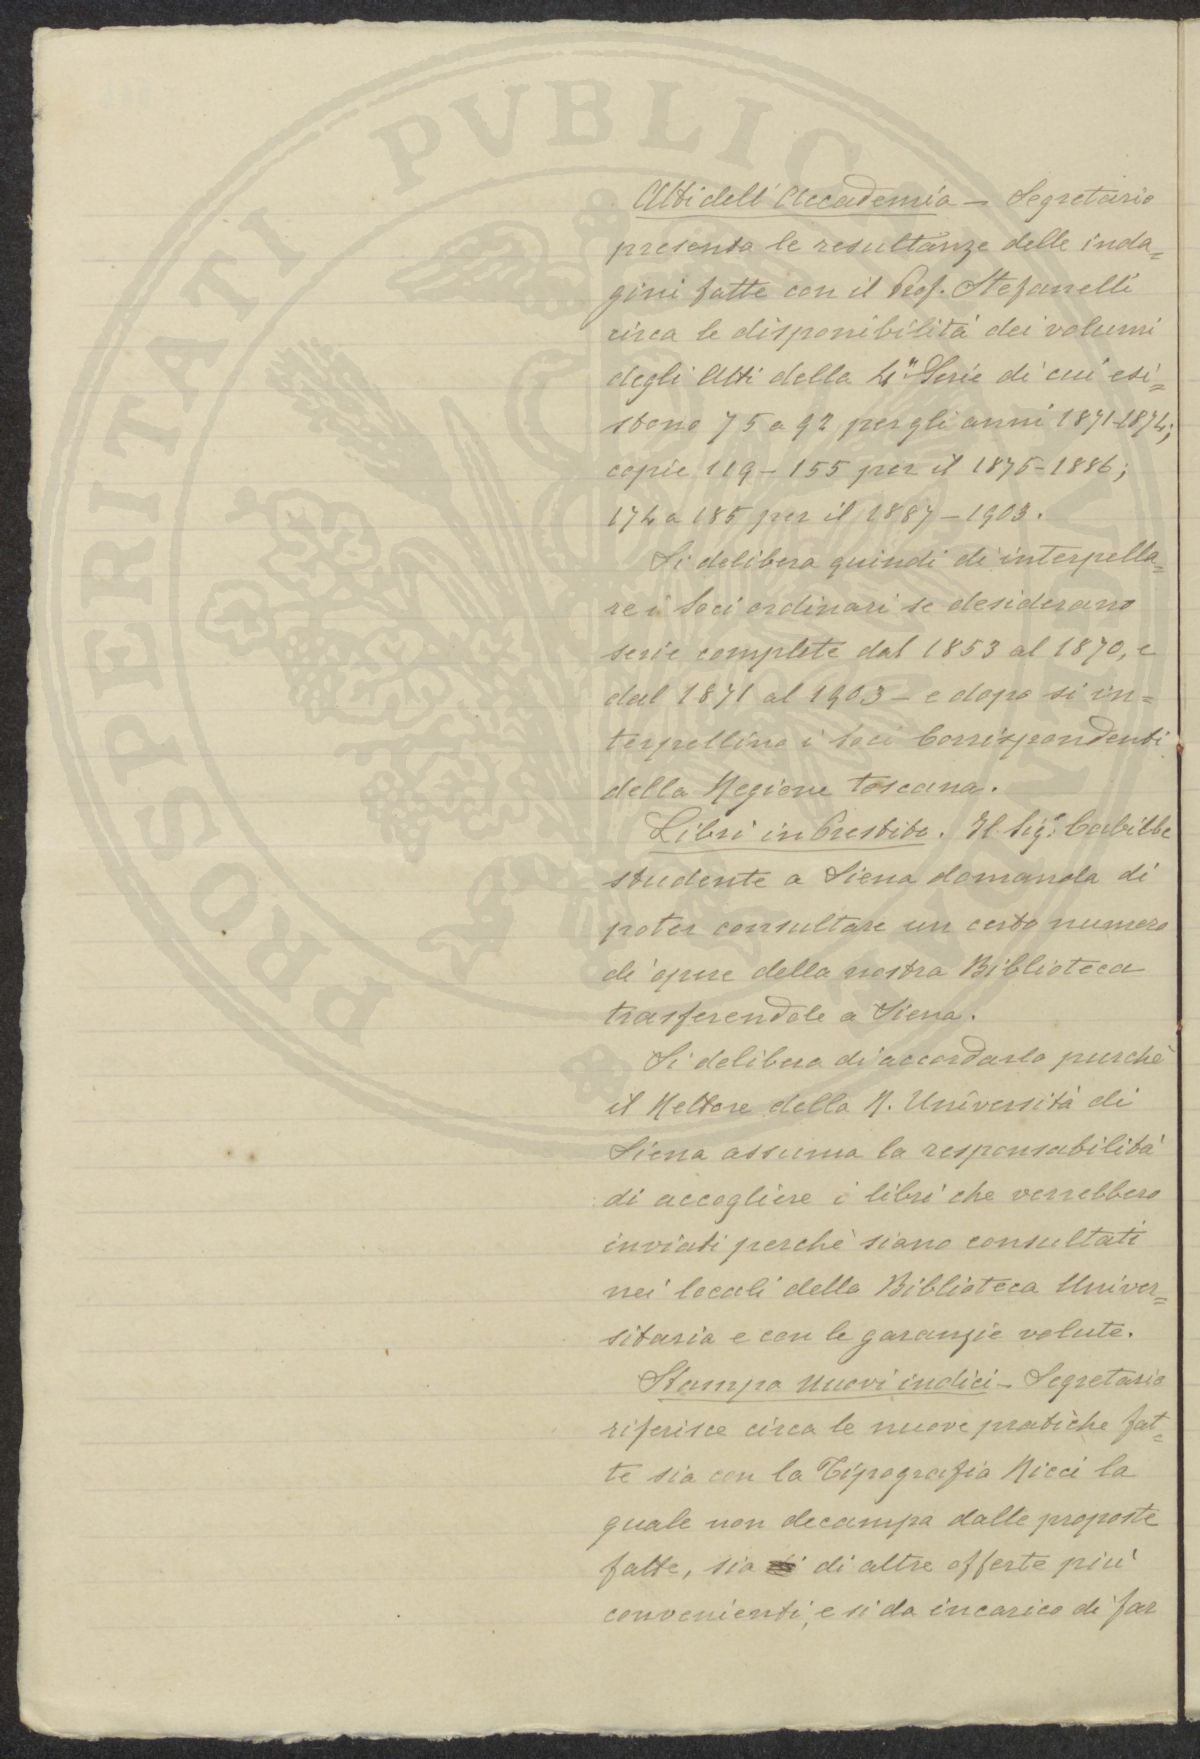 Atti dell'Accademia — Segretario
presenta le resultanze delle inda=
gini fatte con il Prof. Stefanelli
circa le disponibilità dei volumi
degli Atti della 4ª Serie di cui esi=
stono 75 a 92 per gli anni 1871-1874;
copie 119 – 155 per il 1875-1886;
174 a 185 per il 1887 – 1903.
Si delibera quindi di interpella=
re i Soci ordinari se desiderano
serie complete dal 1853 al 1870, e
dal 1871 al 1903 – e dopo si in=
terpellino i Soci Corrispondenti
della Regione Toscana.
Libri in Prestito. Il Sigr.
studente a Siena domanda di
poter consultare un certo numero
di opere della nostra Biblioteca
trasferendole a Siena.
Si delibera di accordarlo purchè
il Rettore della R. Università di
Siena assuma la responsabilità
di accogliere i libri che verrebbero
inviati perchè siano consultati
nei locali della Biblioteca Univer=
sitaria e con le garanzie volute.
Stampa nuovi indici – Segretario
riferisce circa le nuove pratiche fat=
te sia con la Tipografia Ricci la
quale non decampa dalle proposte
fatte, sia di altre offerte più
convenienti, e si da incarico di far
PROSPERITATI PUBLIC